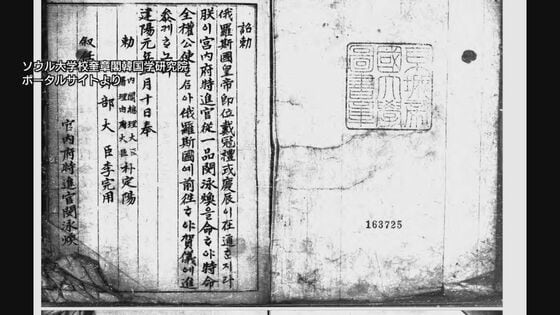 詔勅
俄羅斯國皇帝即位戴冠禮式慶辰이在邇ᄒᆞ지라
朕이宮內府特進官從一品閔泳煥을命ᄒᆞ야特命
全權公使를삼아俄羅斯國에前往ᄒᆞ야賀儀에進
參케ᄒᆞ노
建陽元年 月十日奉
勅
總理大臣 朴定陽
叙
部大臣李完用
宮內府特進官閔泳煥
ソウル大学校奎章閣韓国学研究院
ポータルサイトより
京城帝
國大學
圖書章
163725